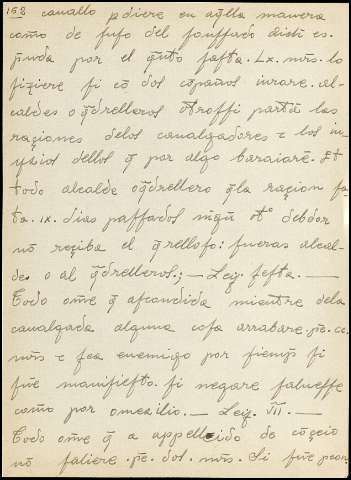 168 cauallo pdiere en aq̃lla manera
como de suso del sonssado dicħ es.
ꝑuda por el quito sasta. Lx. mrs. lo
fiziere si cõ dos cõpañons iurare. al-
caldes o q̃drelleros Otrossi partã las
raçiones delos caualgadores ⁊ los iu
ysios dellos q̃ por algo baraiarẽ. Et
todo alcalde o q̃drellero q̃la raçion fa
ta. ix. dias passados nigũ otº debdor
nõ reçiba el q̃relloso: fueras alcal-
de. o al q̃drelleros.; — Ley. sesta. —
Todo ome q̃ ascondida mientre dela
caualgada alguna cosa arrabare. pe. cc.
mrs ⁊ sea enemigo por siemp̃ si
fue manifiesto. si negare saluesse
como por omezilio. — Ley. VII. —
Todo ome q̃ a appellido de cõçeio
nõ saliere. pe. dos. mrs. Si fue peon